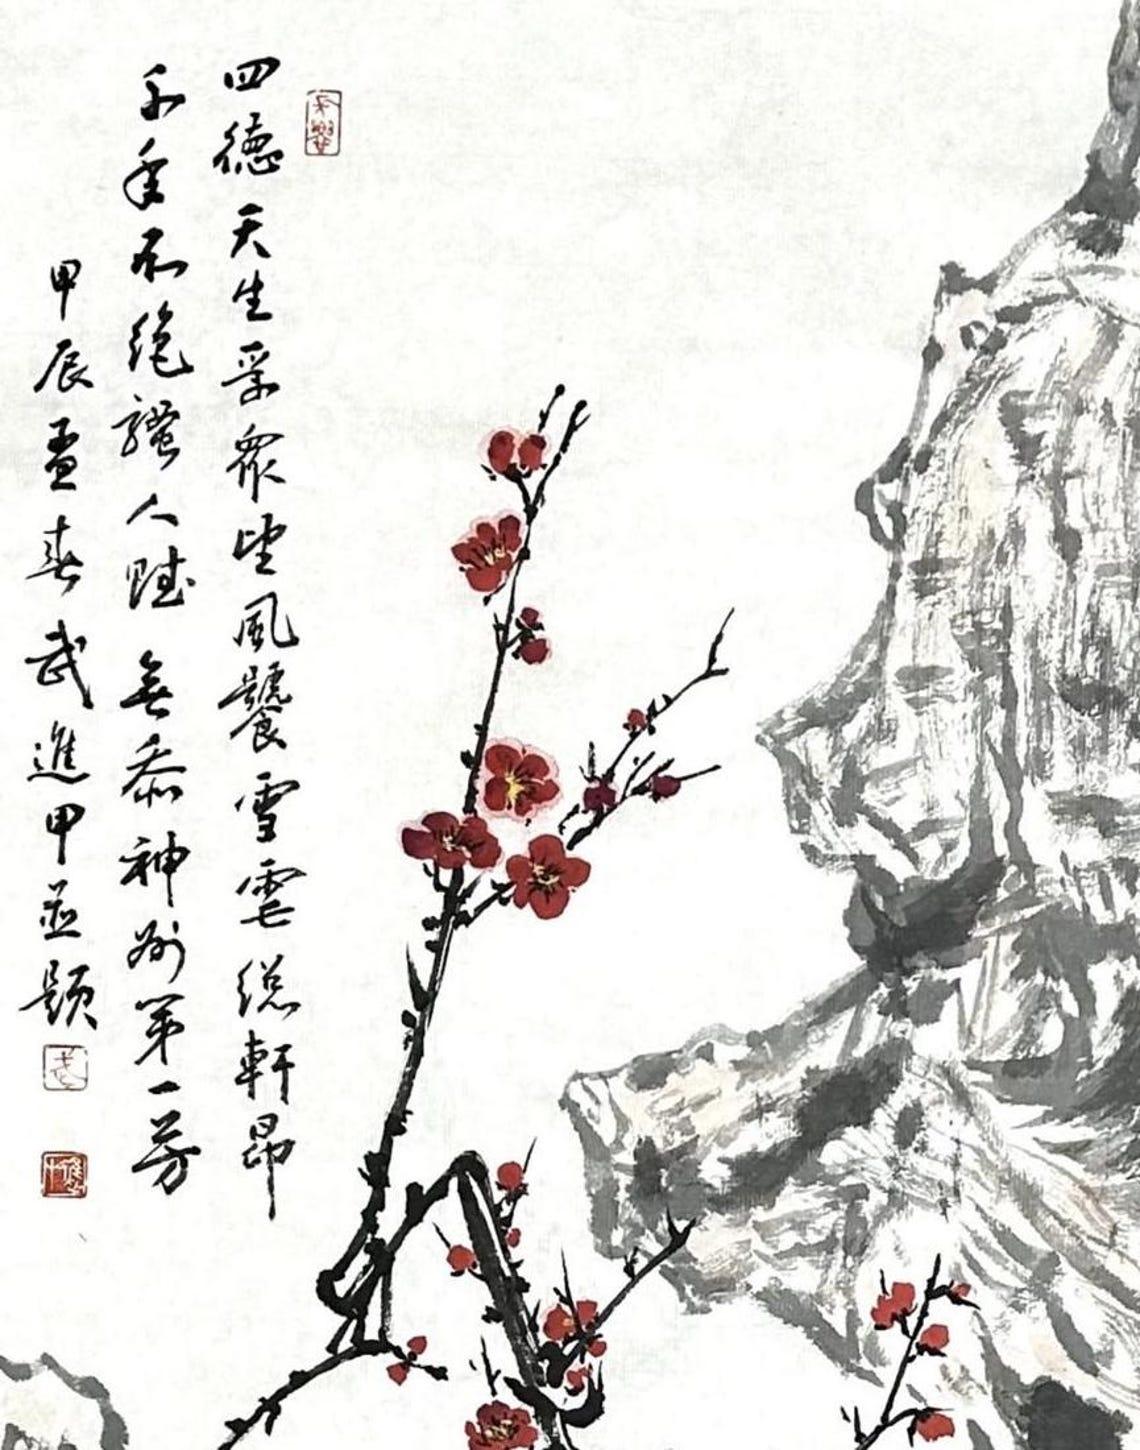 四德天生孚衆望風饕雪虐總軒昂
千年不絕騷人賦無忝神州第一芳
甲辰孟春武進甲並題